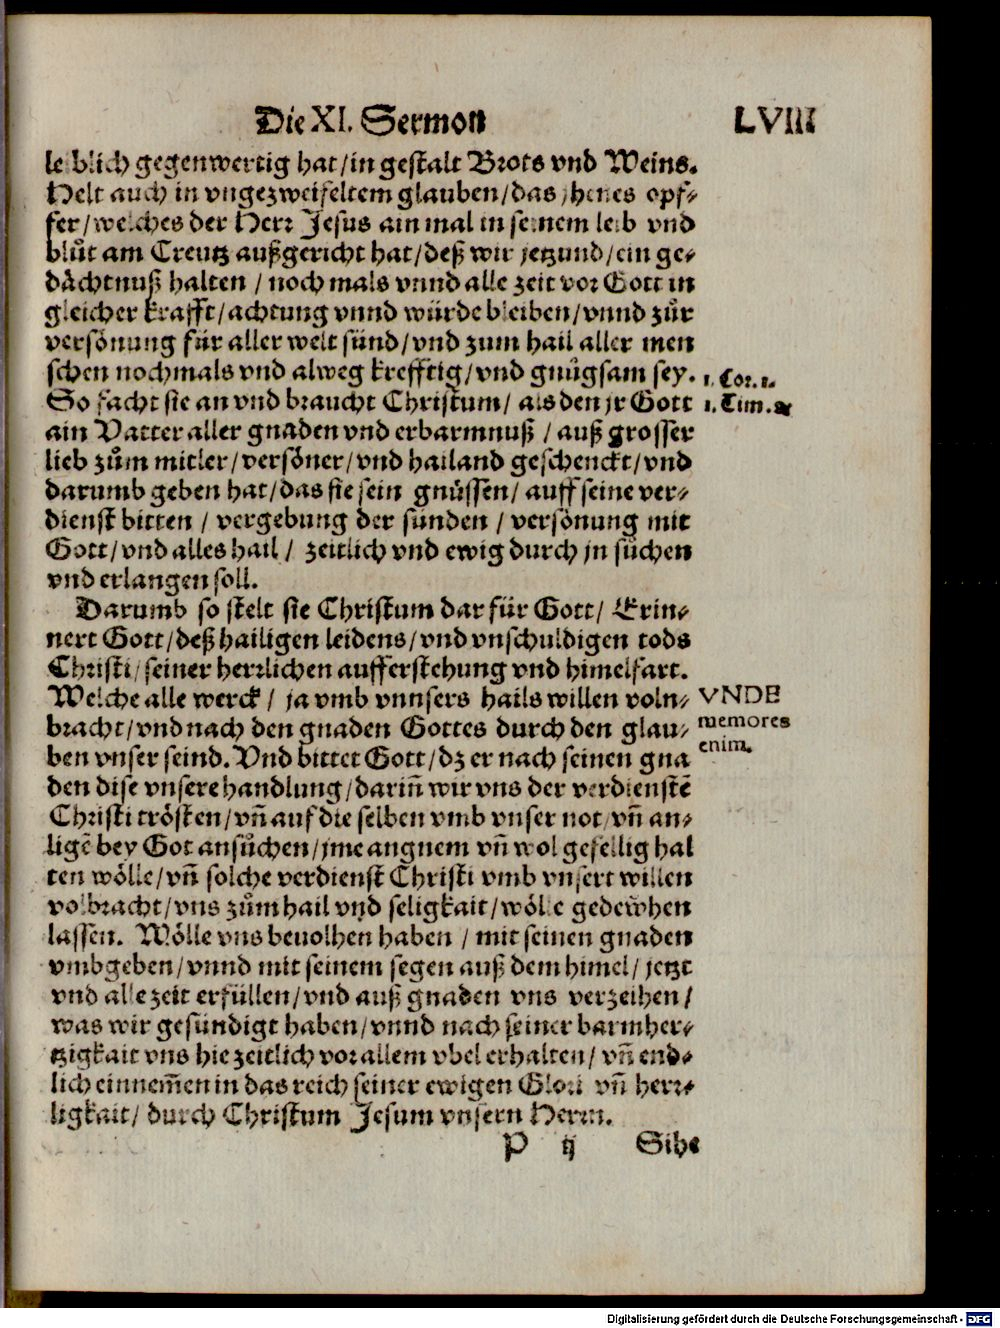 Die XI. Sermon LVIII
leiblich gegenwertig hat/in gestalt Brots vnd Weins.
Helt auch in vngezweifeltem glauben/das jhenes opf-
fer/welches der Herr Jesus ain mal in seinem leib vnd
blůt am Creutz außgericht hat/deß wir jetzund/ein ge-
dächtnuß halten / noch mals vnnd alle zeit vor Gott in
gleicher krafft/achtung vnnd würde bleiben/vnnd zůr
versönung für aller welt sünd/vnd zum hail aller men
schen nochmals vnd alweg krefftig/vnd gnůgsam sey.
1. Cor. 1.
So facht sie an vnd braucht Christum/ als den jr Gott
1. Tim. 2
ain Vatter aller gnaden vnd erbarmnuß / auß grosser
lieb zům mitler/versöner/vnd hailand geschenckt/vnd
darumb geben hat/das sie sein gnüssen/ auff seine ver-
dienst bitten / vergebung der sünden / versönung mit
Gott/vnd alles hail / zeitlich vnd ewig durch jn sůchen
vnd erlangen soll.
Darumb so stelt sie Christum dar für Gott/ Erin-
nert Gott/deß hailigen leidens/vnd vnschuldigen tods
Christi/seiner herrlichen aufferstehung vnd himelfart.
Welche alle werck/ ja vmb vnnsers hails willen voln-
VNDE
bracht/vnd nach den gnaden Gottes durch den glau-
memores
ben vnser seind. Vnd bittet Gott/dz er nach seinen gna
enim.
den dise vnsere handlung/dariñ wir vns der verdienstẽ
Christi trösten/vñ auf die selben vmb vnser not/vñ an-
ligẽ bey Got ansůchen/jme angnem vñ wol gefellig hal
ten wölle/vñ solche verdienst Christi vmb vnsert willen
volbracht/vns zům hail vnd seligkait/wölle gedeẅhen
lassen. Wölle vns beuolhen haben / mit seinen gnaden
vmbgeben/vnnd mit seinem segen auß dem himel/ jetzt
vnd alle zeit erfüllen/vnd auß gnaden vns verzeihen/
was wir gesündigt haben/vnnd nach seiner barmher-
tzigkait vns hie zeitlich vor allem vbel erhalten/ vñ end-
lich einnem̃en in das reich seiner ewigen Glori vñ herr-
ligkait/ durch Christum Jesum vnsern Herrn.
P ij Sihe
Digitalisierung gefördert durch die Deutsche Forschungsgemeinschaft - DFG